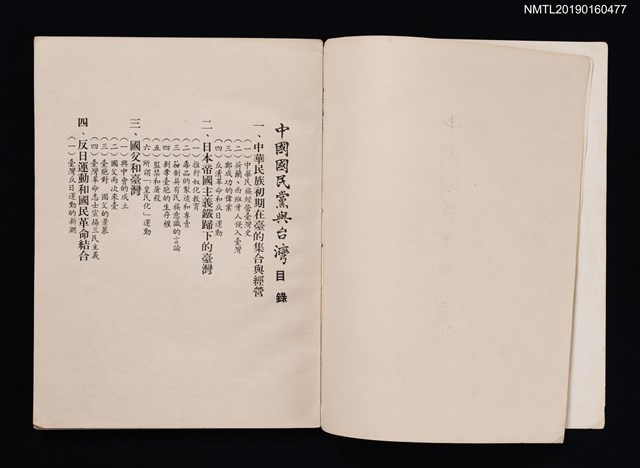 NMTL20190160477
中國國民黨與台灣 目錄
一、中華民族初期在臺的集合與經營
（一）中華民族經營臺灣史
（二）荷蘭、西班牙人侵入臺灣
（三）鄭成功的偉業
（四）反清革命和反日運動
二、日本帝國主義鐵蹄下的臺灣
（一）推行奴化教育
（二）毒品的製造和專賣
（三）抑制具有民族意識的言論
（四）剝奪臺胞的生存權
（五）監禁和屠殺
（六）所謂「皇民化」運動
三、國父和臺灣
（一）興中會的成立
（二）國父兩次來臺
（三）臺胞對 國父的景慕
（四）臺灣革命志士宣揚三民主義
四、反日運動和國民革命結合
（一）臺灣反日運動的新潮